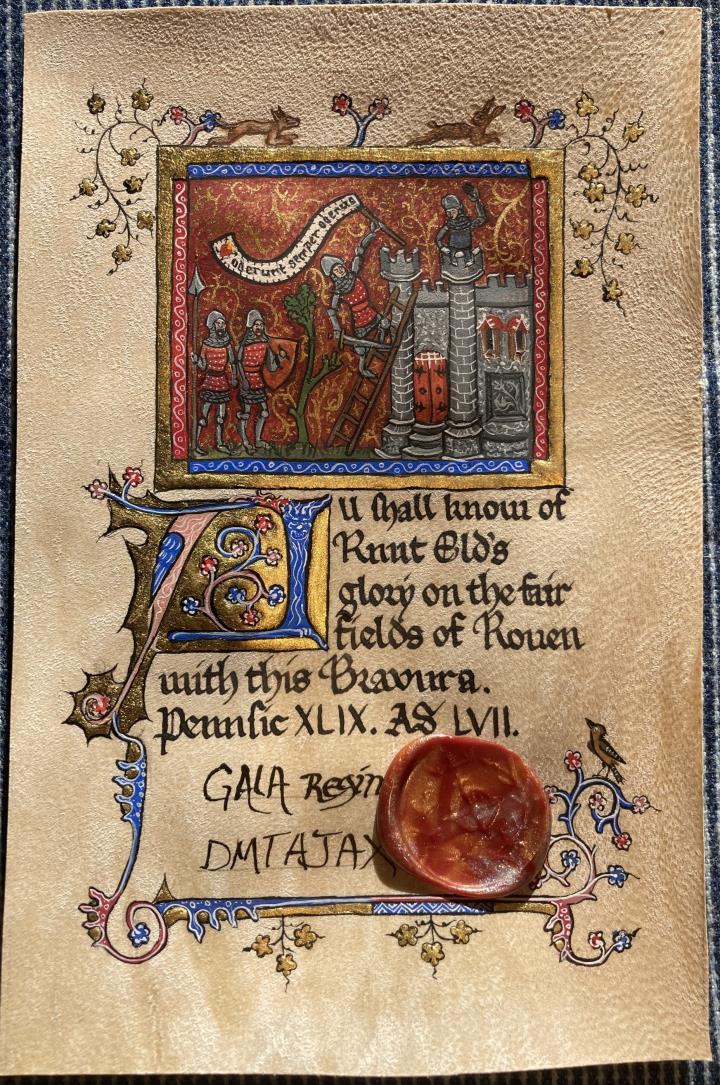 oderunt semper oderint
All shall know of
Runt Eld's
glory on the fair
fields of Rouen
with this Bravura.
Pennsic XLIX. AS LVII.
GALA Regin
DMTAJAX